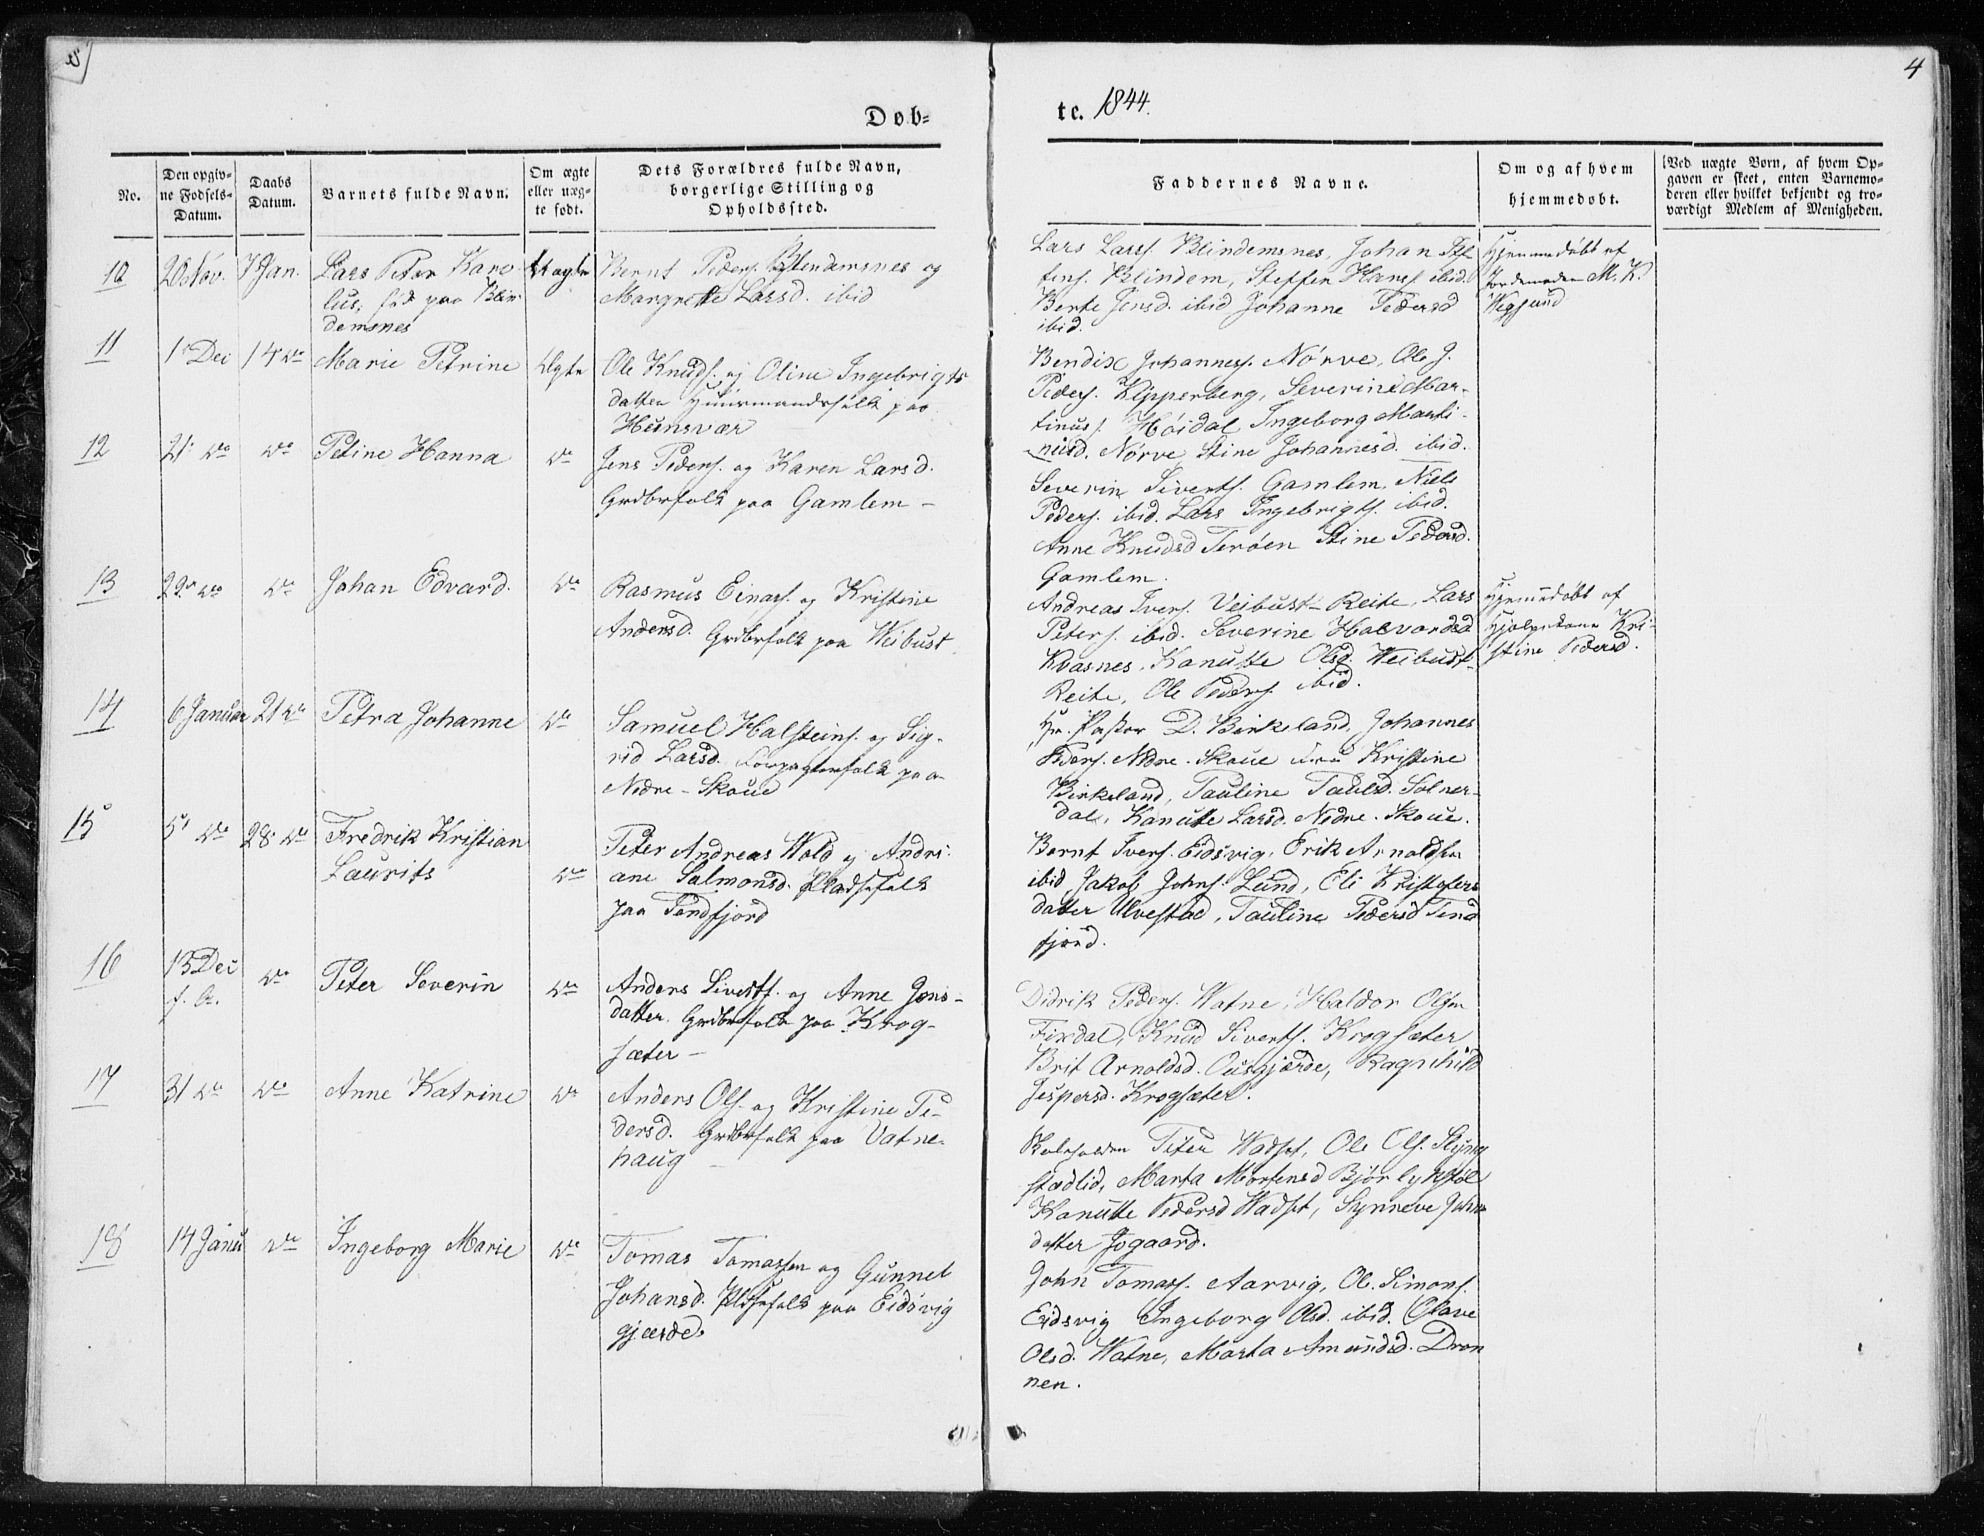 4
Døb-
te. 1844.
No.
Den opgiv-
ne Fødsels-
Datum.
Daabs
Datum.
Barnets fulde Navn.
Om ægte
eller uæg-
te født.
Dets Forældres fulde Navn,
borgerlige Stilling og
Opholdssted.
Faddernes Navne.
Om og af hvem
hjemmedøbt.
(Ved uægte Børn, af hvem Op-
gaven er skeet, enten Barnemo-
deren eller hvilket bekjendt og tro-
værdigt Medlem af Menigheden.
10
20 Nov.
7 Jan.
Lars Peter Kare-
lius, fød paa Blin-
demsnes
Uægte
Bernt Peders. Blindemsnes og
Margrette Larsd. ibid
Lars Larss. Blindemsnes, Johan
Blindem, Steffen Hans. ibid.
Berte Jensd. ibid Johanne Pedersd
ibid.
Hjemmedøbt af
Jordemoder M. K.
Wegsund
11
1 Dec
14 do
Marie Petrine
Ægte
Ole Knuds. og Oline Ingebrigts
datter Huusmandsfolk paa
Hunsvær
Bendix Johanness. Nørve, Ole J.
Peders. Kipperberg, Severine Mar-
tinus Høidal Ingeborg Marti-
nusd. Nørve Stine Johannesd. ibid.
12
21 do
do
Petine Hanna
do
Jens Peders. og Karen Larsd.
Grdbrfolk paa Gamlem -
Severin Siverts. Gamlem, Niels
Peders. ibid. Lars Ingebrigts. ibid.
Anne Knudsd Terøen Stine Pedersd.
Gamlem.
13
22 do
do
Johan Edvard.
do
Rasmus Einars. og Kristine
Andersd. Grdbrfolk paa Weibust.
Andreas Ivers. Veibust-Reite, Lars
Peters. ibid. Severine Halvardsd
Kvasnes, Kanutte Olsd. Weibust-
Reite, Ole Peders. ibid.
Hjemmedøbt af
Hjelpekone Kri-
stine Pedersd.
14
6 Januar
21 do
Petra Johanne
do
Samuel Halsteins. og Sig-
rid Larsd. Forpagterfolk paa
Nedre-Skoue
Hr. Pastor D. Birkeland, Johannes
Peders. Nedre-Skoue Fru Kristine
Birkeland, Pauline Paulsd. Solner-
dal, Kanutte Larsd. Nedre-Skoue.
15
5 do
28 do
Fredrik Kristian
Laurits
do
Peter Andreas Wold og Andri-
ane Salmonsd. Pladsefolk
paa Tendfjord
Bernt Ivers. Eidsvig, Erik Arnoldsen
ibid, Jakob Johns. Lund, Eli Kristofers
datter Ulvestad, Pauline Pedersd Tend
fjord.
16
13 Dec
f. A.
do
Peter Severin
do
Anders Siverts. og Anne Jens-
datter. Grdbrfolk paa Krog-
sæter -
Didrik Peders. Watne, Haldor Olsen
Fixdal, Knud Siverts. Krogsæter,
Brit Arnoldsd. Ousgjærde, Ragnhild
Jespersd. Krogsæter.
17
31 do
do
Anne Katrine
do
Anders Ols. og Kristine Pe-
dersd. Grdbrfolk paa Vatne-
haug -
Skoleholder Peter Wadset, Ole Ols. Slyng
stadlid, Marta Mortensd Bjørlykstøl
Kanutte Pedersd Wadset, Synneve John
datter Jogaard.
18
14 Janu
do
Ingeborg Marie
do
Tomas Tomassen og Gunnel
Johansd. Pldsefolk paa Eidsvig
gjærde.
John Tomass. Aarvig, Ol. Simons.
Eidsvig Ingeborg Olsd. ibid. Olave
Olsd. Watne, Marta Amundsd. Dron
nen.